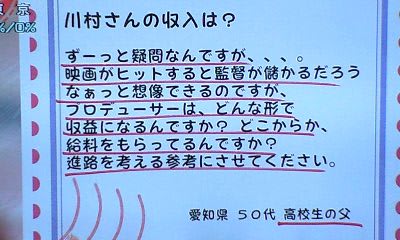 東京
%/0%
川村さんの収入は？
ずーっと疑問なんですが、、、。
映画がヒットすると監督が儲かるだろう
なぁっと想像できるのですが、
プロデューサーは、どんな形で
収益になるんですか？ どこからか、
給料をもらってるんですか？
進路を考える参考にさせてください。
愛知県 ５０代 高校生の父